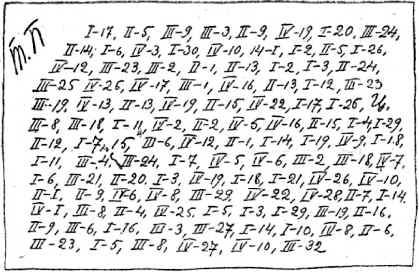 Т.П
I-17, II-5, III-9, III-3, II-9, IV-19, I-20, III-24,
II-14, I-6, IV-3, I-30, IV-10, 14-I, I-2, II-5, I-26,
IV-12, III-23, III-2, II-1, II-13, I-2, I-3, II-24,
III-25 IV-25, IV-17, III-1, IV-16, II-13, I-12, III-23
III-19, IV-13, II-13, IV-19, II-15, IV-22, I-17, I-25, Ц,
III-8, III-18, I-11, IV-2, II-2, IV-5, IV-16, II-15, I-4, I-29,
II-12, I-7, 15, III-6, IV-12, II-1, I-14, I-19, IV-9, I-18,
I-11, III-4. III-24, I-7, IV-5, IV-6, III-2, III-18, IV-7,
I-6, III-21, II-20, I-3, IV-19, I-18, I-21, IV-26, IV-10,
II-I, II-9, IV-6, IV-8, III-29, IV-22, IV-28, II-7, I-14,
IV-I, III-8, II-4, IV-25, I-5, I-3, I-29, III-19, II-16,
II-9, III-6, I-16, III-3, III-27, I-14, I-10, IV-8, II-6,
III-23, I-5, III-8, IV-27, IV-10, III-32